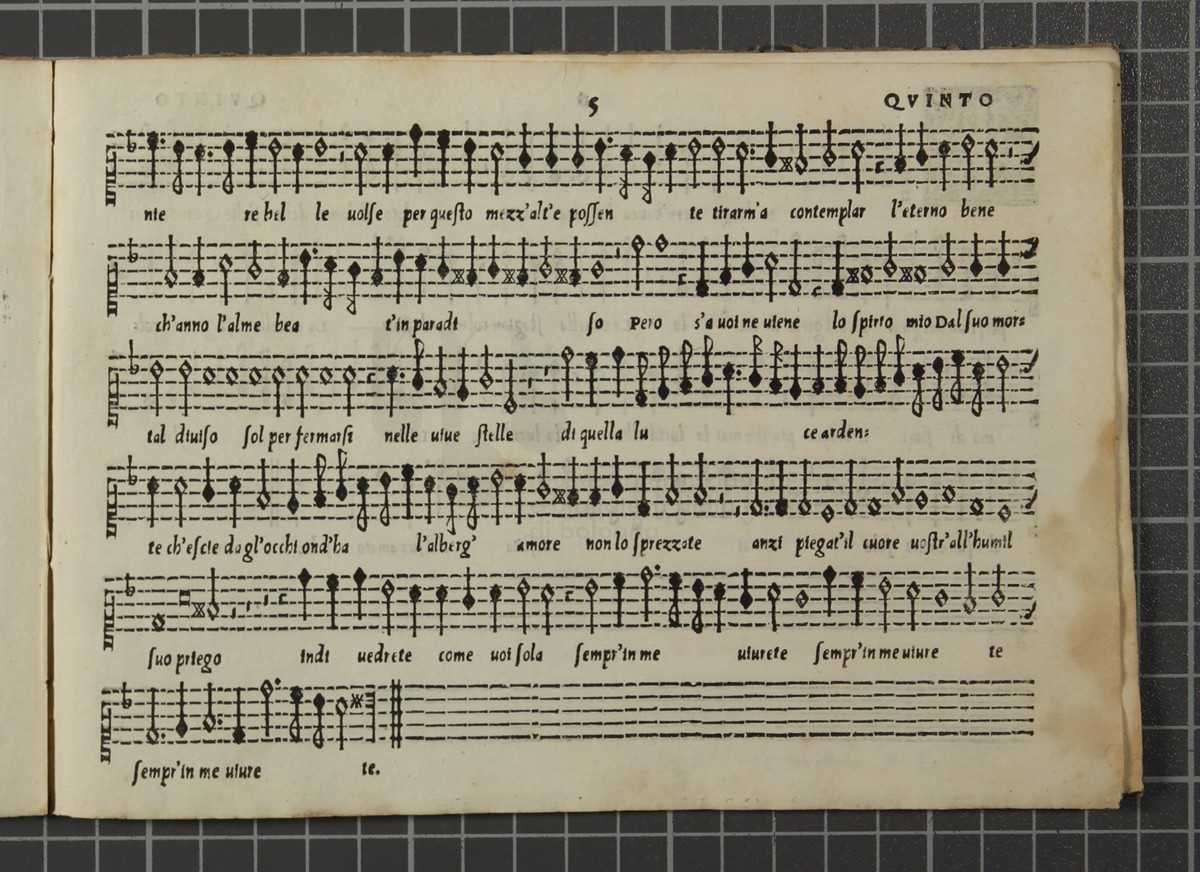 5 QVINTO
nie re bel le uolse per questo mezz'alt'e possen te tirarm'a contemplar l'eterno bene
ch'anno l'alme bea t'in paradi so Pero s'a uoi ne uiene lo spirto mio Dal suo mor=
tal diuiso sol per fermarsi nelle uiue stelle di quella lu ce arden=
te ch'escie da gl'occhi ond'ha l'alberg' amore non lo sprezzate anzi piegat'il cuore uostr'all'humil
suo priego indi uedrete come uoi sola sempr'in me uiurete sempr'in me uiure te
sempr'in me uiure te.